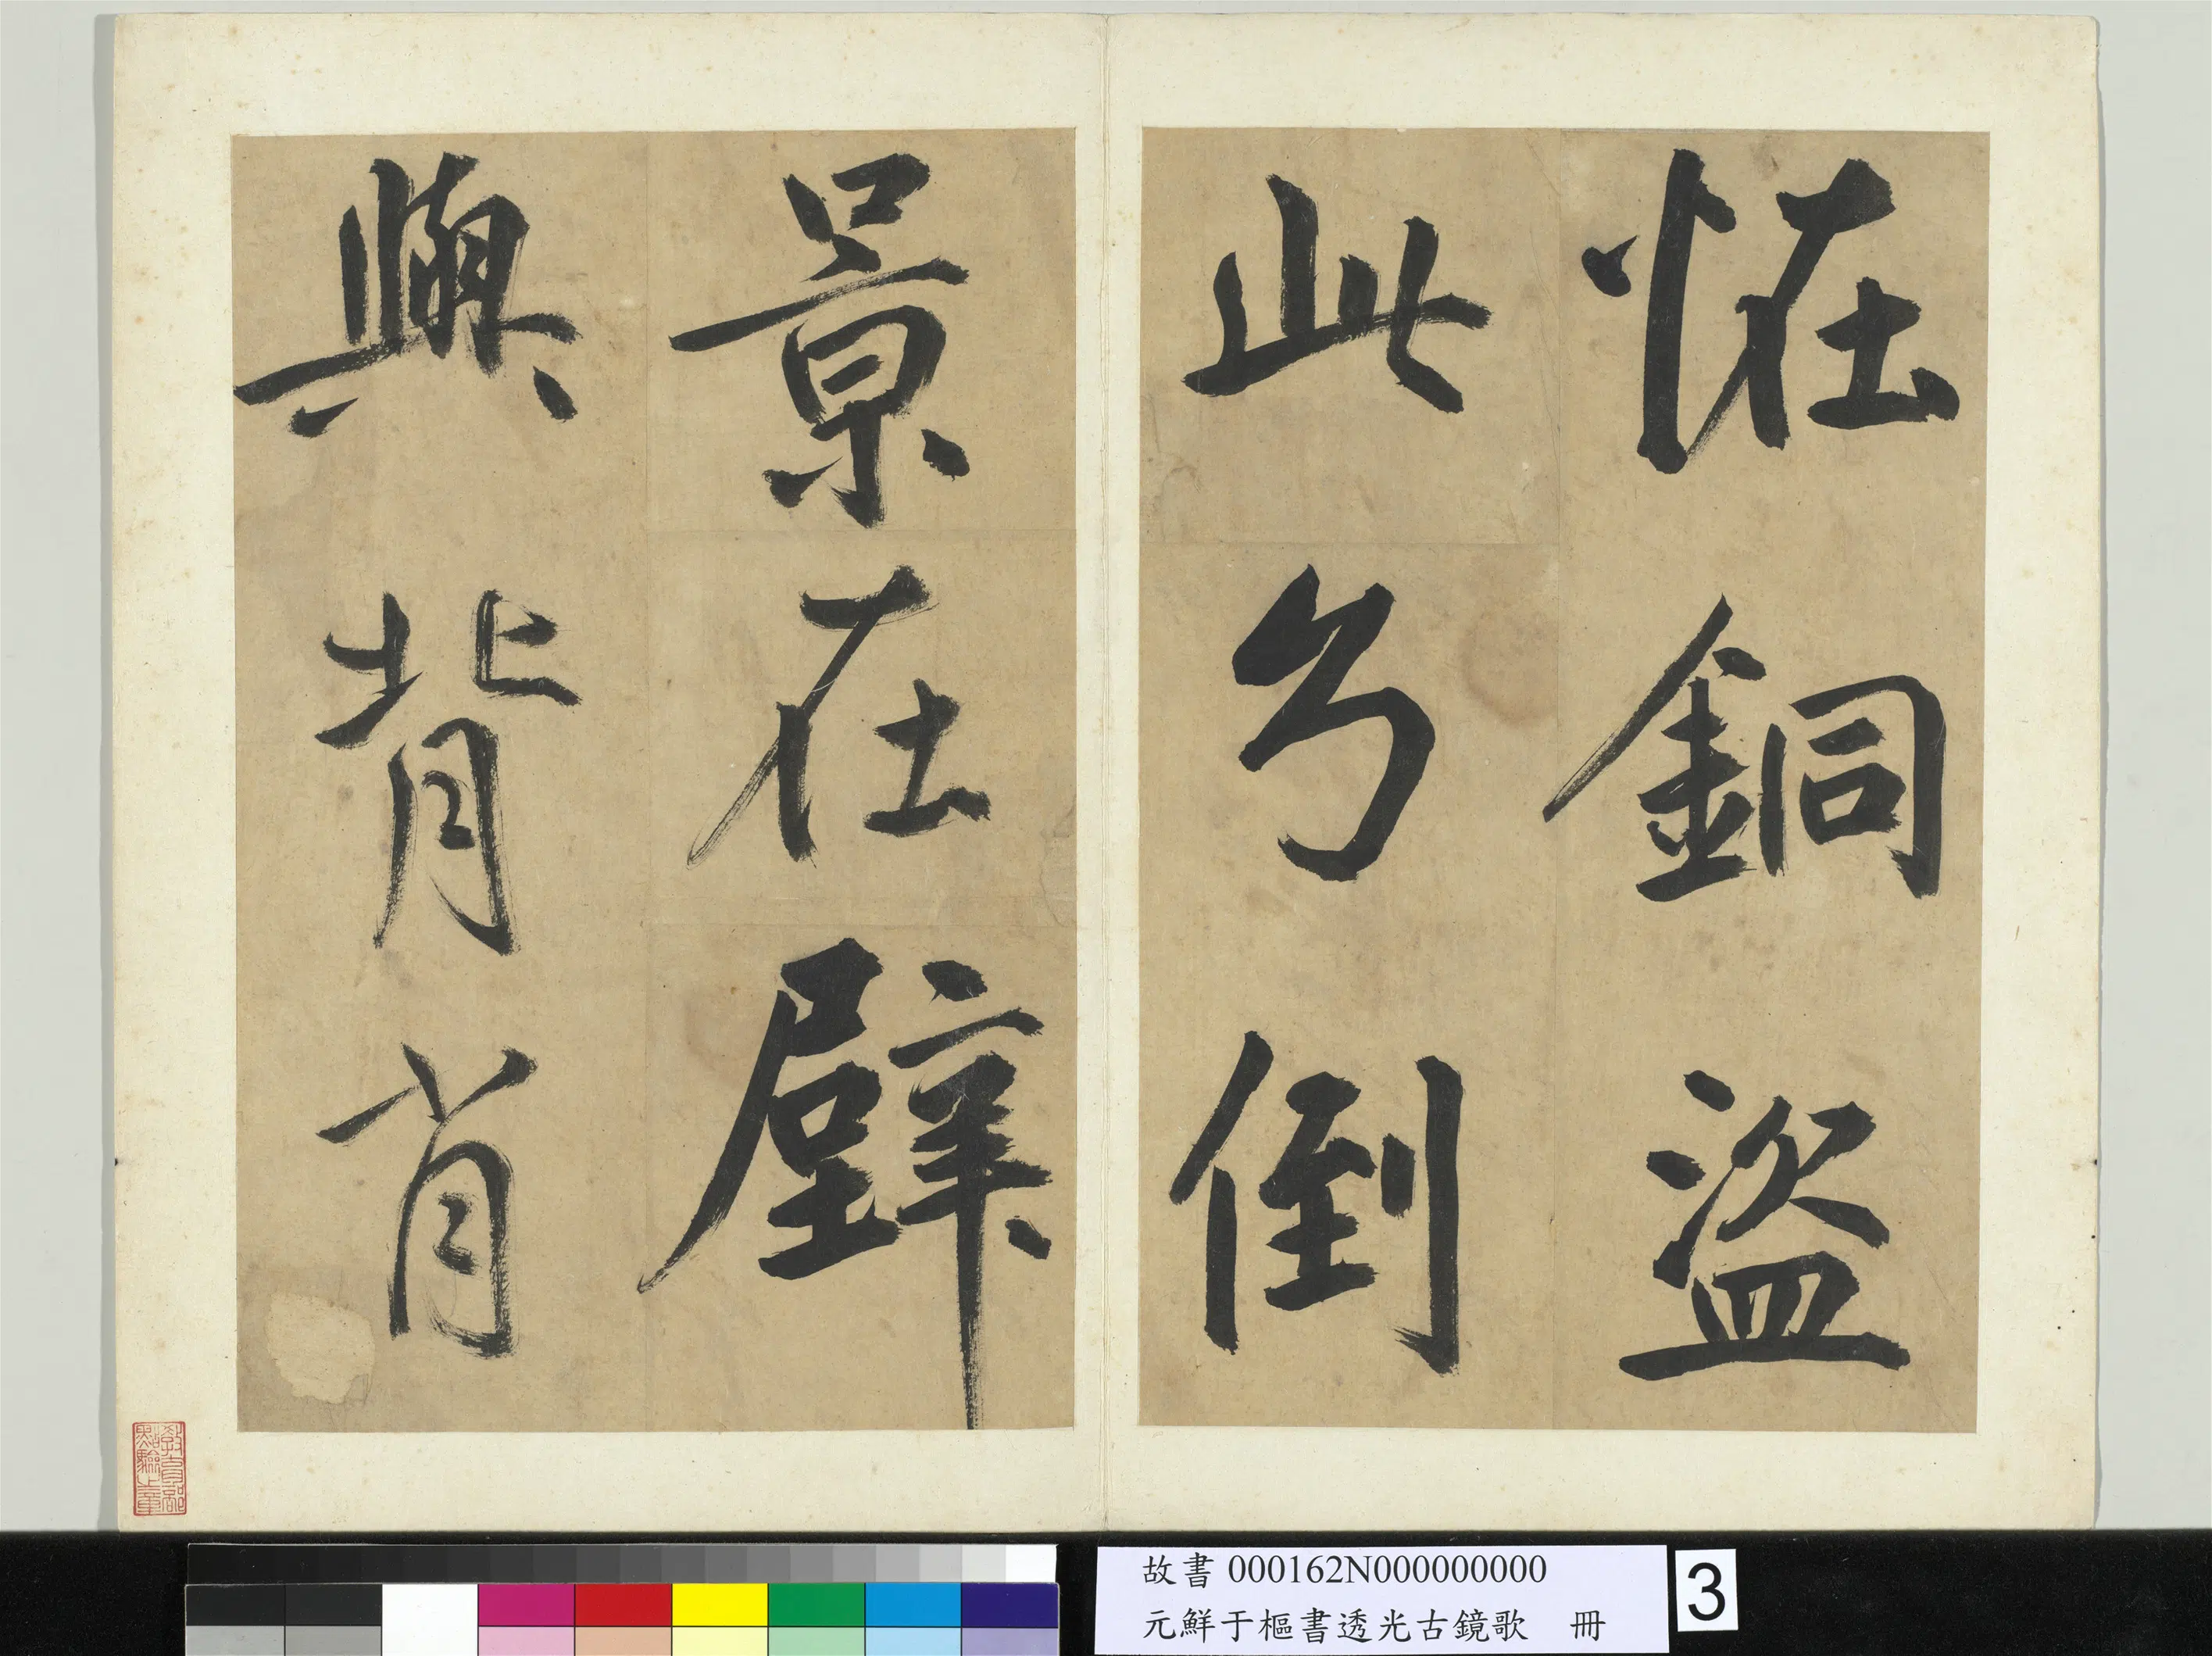 恠銅盜
此幻倒
景在壁
與背肖
教育部
點驗之章
故書 000162N000000000
元鮮于樞書透光古鏡歌 冊
3